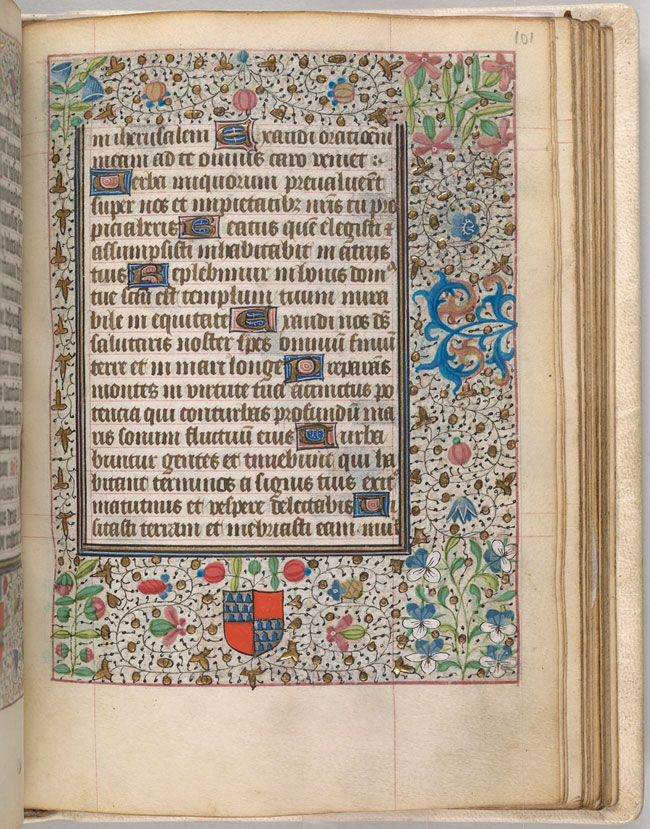 101
in iherusalem Exaudi orationē
meam ad te omnis caro veniet :
Verba iniquorum prevaluerūt
super nos et impietatibꝫ nr̄is tu pro
piciaberis Beatus quē elegisti ⁊
assumpsisti inhabitabit in atriis
tuis Replebimur in bonis domꝰ
tue scm̄ est templum tuum mira
bile in equitate Exaudi nos ds̄
salutaris noster spes omniū finiū
terre et in mari longe Preparās
montes in virtute tua accinctus po
tencia qui conturbas profundū ma
ris sonum fluctuū eius Turba
buntur gentes et timebunt qui ha
bitant terminos a signis tuis exitꝰ
matutinus et vespere delectabis Vi
sitasti terram et inebriasti eam mul